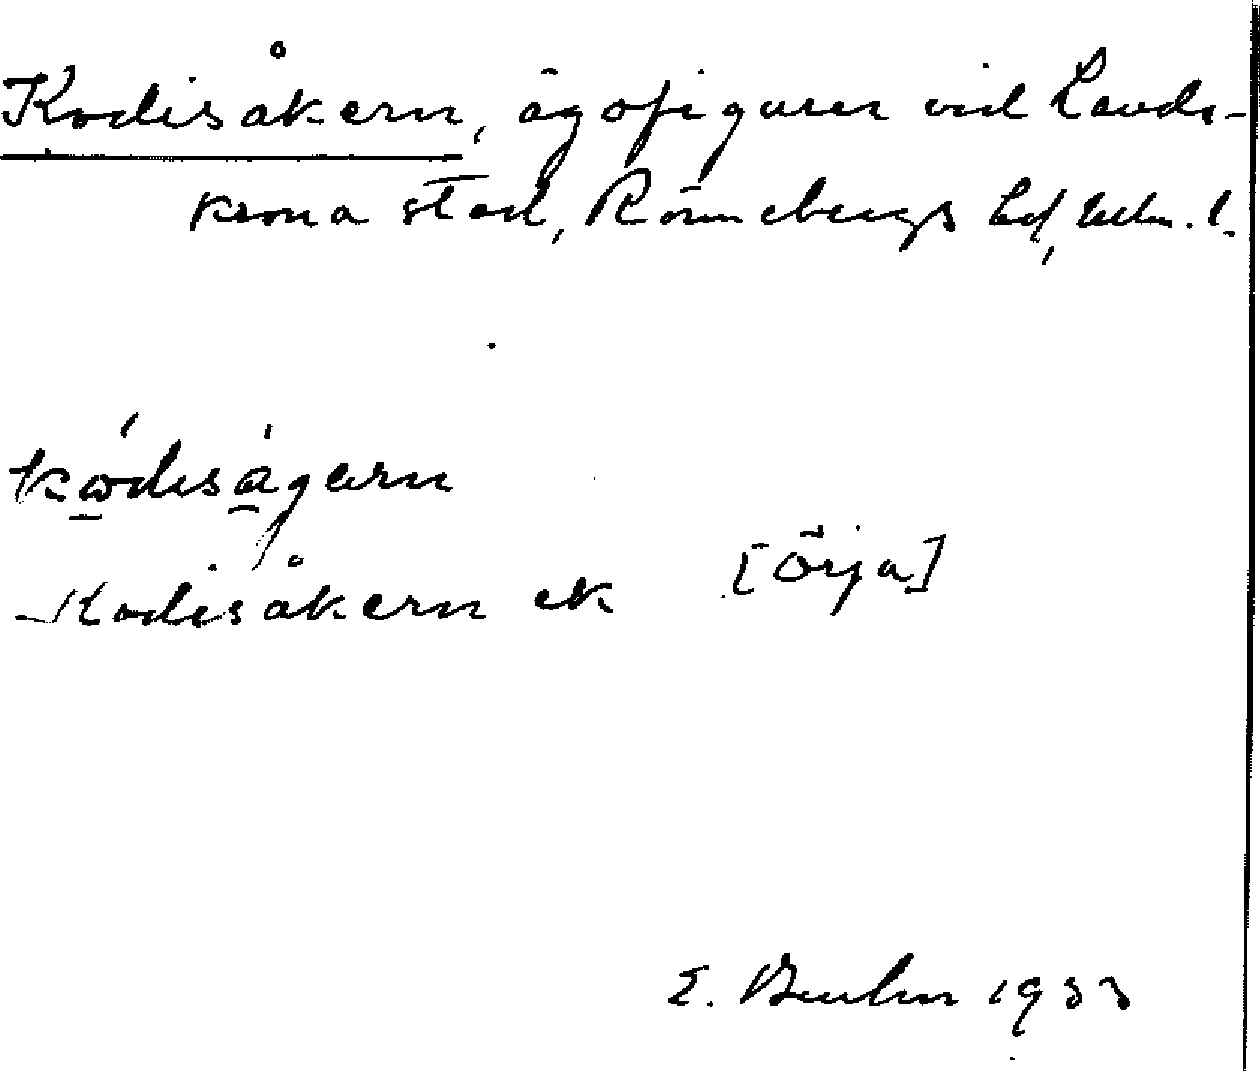 Kodisåkern, ägofigurer vid Lands-
krona stad, Rönnebergs hd, Mlm. l.
kọ́disá̱gærn
Kodisåkern ek [Örja]
E. 1933